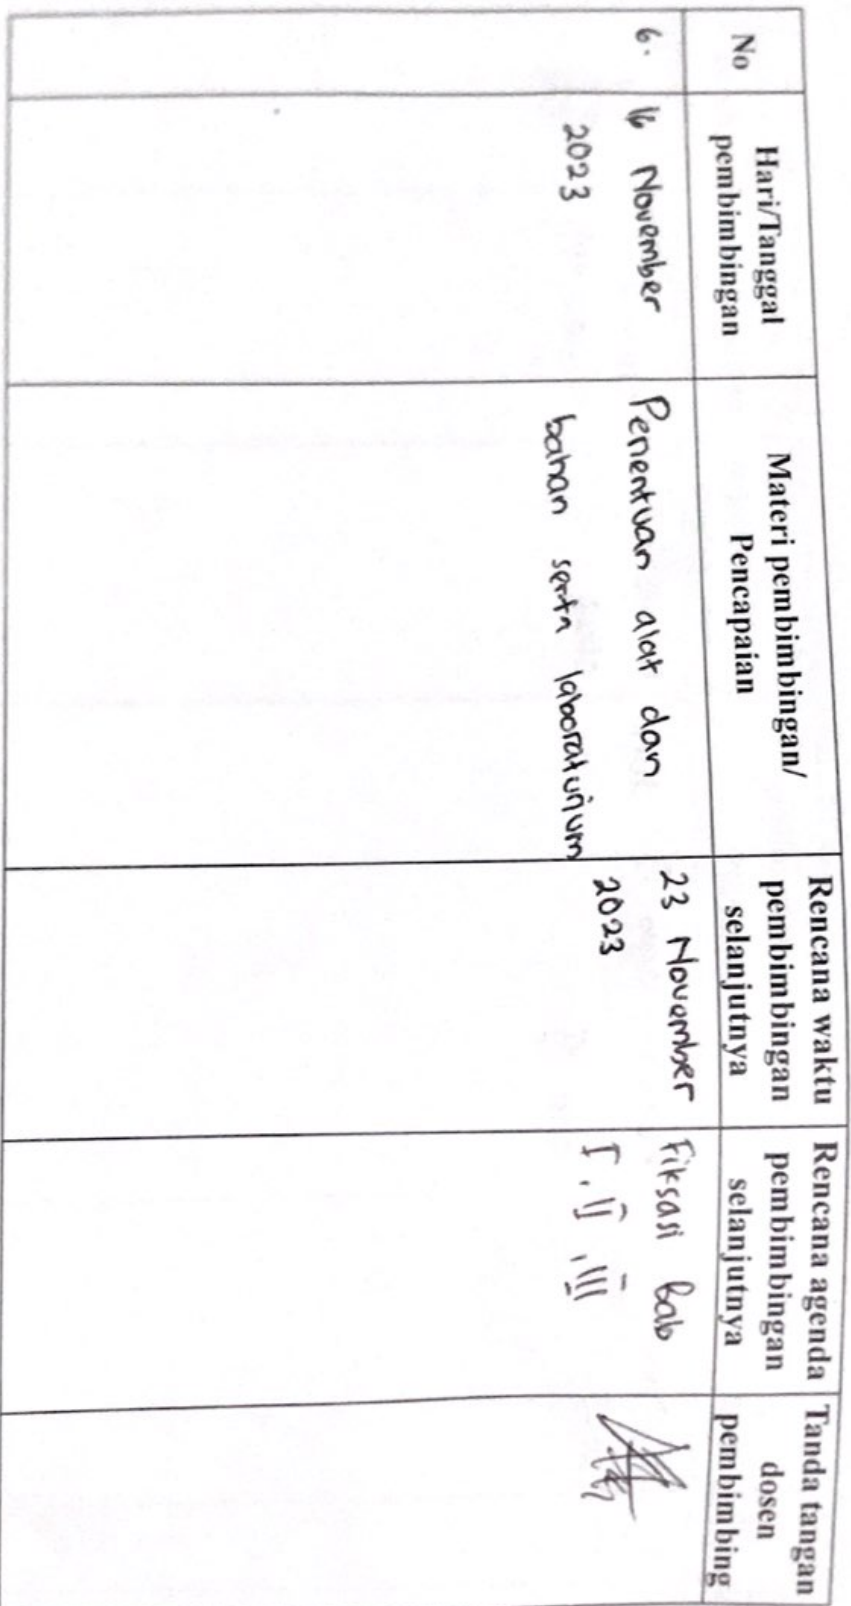 No
Hari/Tanggal
pembimbingan
Materi pembimbingan/
Pencapaian
Rencana waktu
pembimbingan
selanjutnya
Rencana agenda
pembimbingan
selanjutnya
Tanda tangan
dosen
pembimbing
6.
16 November
2023
Penentuan alat dan
bahan serta laboraturium
23 November
2023
Fiksasi Bab
I, II, III